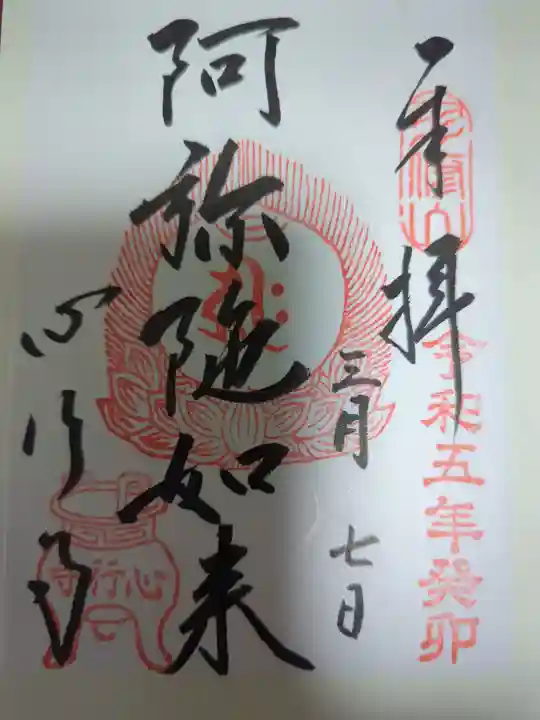 奉拝
令和五年癸卯
三月七日
阿弥陀如来
心行寺
心行寺